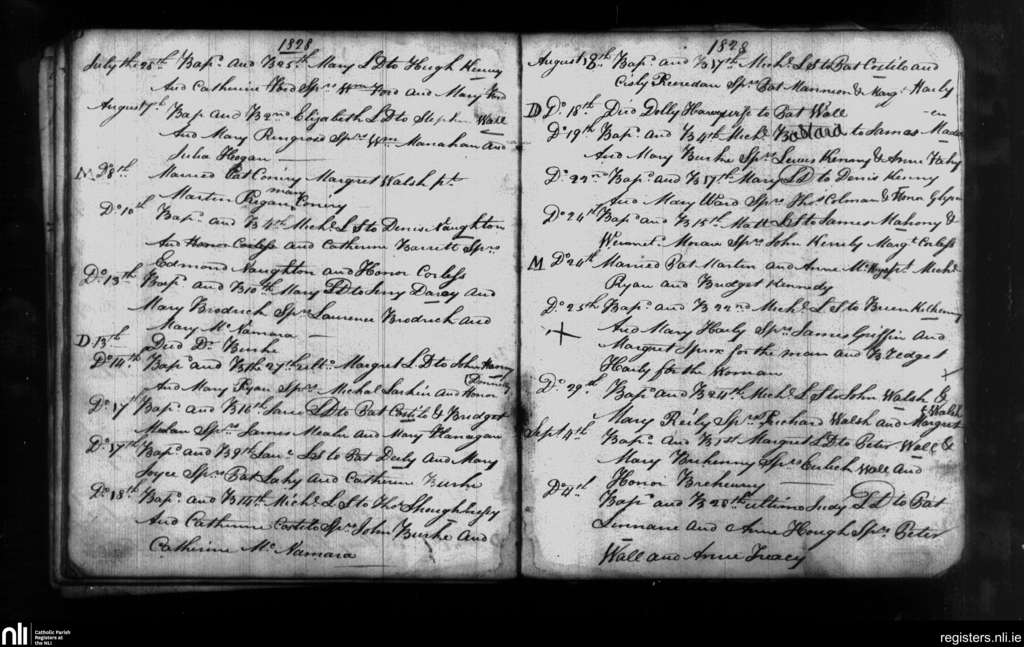 1828
July the 28th Bapd. And B 25th Mary LD to Hugh Kenny
And Catherine Ford Sprs Wm Ford and Mary Ford
August 7th Bap and B 2nd Elizabeth LD to Stephen Wall
And Mary Ringrose Sprs Wm Manahan and
Julia Hogan
M Do 8th Married Pat Conry Margret Walsh pt.
Martin Mary Conry
Do. 10th Bapd. and B 4th Michl. LS to Denis Naughton
And Honor Corless and Catherine Barrett Sprs
Edmond Naughton and Honor Corless
Do. 13th Bapd. and B 10th Mary LD to Darcy And
Mary Brodrick Sprs Laurence Brodrick and
Mary McNamara
D 13th Died Dr. Burke
Do 14th. Bapd. and B the 27th ulto. Margret LD to John
And Mary Ryan Sprs Michal Larkin and Honor
Do. 17 Bapd. and B 16th Jane LD to Pat Costilo & Bridget
Sprs James and Mary Flanagan
Do. 17th Bapd. and B 9th LS to Pat and Mary
Joyce Sprs Pat Lahy and Catherine Burke
Do. 18th Bapd. and B 14th Michl. LS to Thos Shoughnessy
And Catherine Costilo Sprs John Burke And
Catherine McNamara
1828
August 18th Bapd. and B 17th Michl. LS to Pat Costilo and
Cisly Sprs Pat Mannion & Margt. Harly
D Do. 18th. Died Dolly wife to Pat Wall
Do 19th Bapd. and B 4th Michl. Bastard to James
And Mary Burke Sprs Lewis Kenny & Anne Fahy
Do. 22nd Bapd. and B 17th Mary LD to Denis Kenny
And Mary Ward Sprs Thos Colman & Honor
Do 24th Bapd. and B 15th Matt LS to James Mahony &
Sprs John Margt Corless
M Do 24th Married Pat Martin and Anne Michl.
Ryan and Bridget Kennedy
Do. 25th Bapd. and B 22nd Michl. LS to
And Mary Harly Sprs James Griffin And
Margret for the man and Bridget
Harly for the Woman
Do. 29th. Bapd. and B 24th Michl. LS to John Walsh &
Mary Reily Sprs Richard Walsh and Margret
Walsh
Sept 4th Bapd. and B 1st Margret LD to Peter Wall &
Mary Sprs Wall And
Honor
Do 4th. Bapd. and B 28th ultimo Judy LD to Pat
Linnane and Anne Hough Sprs Peter
Wall and Anne Treacy
nli
Catholic Parish
Registers at
the NLI
registers.nli.ie